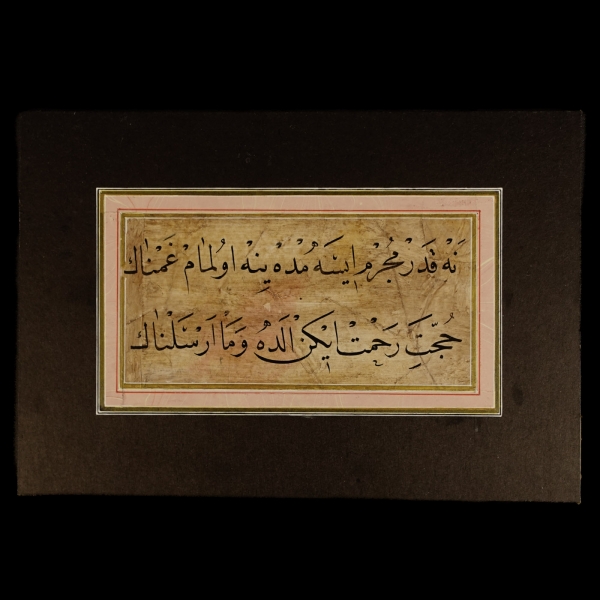 نَه قَدَرْ مُجْرِمْ اِيسَه مْدَه يِنَه اوُلمَامْ غَمْنَاكْ
حُجَّتِ رَحْمَتْ ايكَنْ اَلدَه وَمَا اَرْسَلْنَاكْ